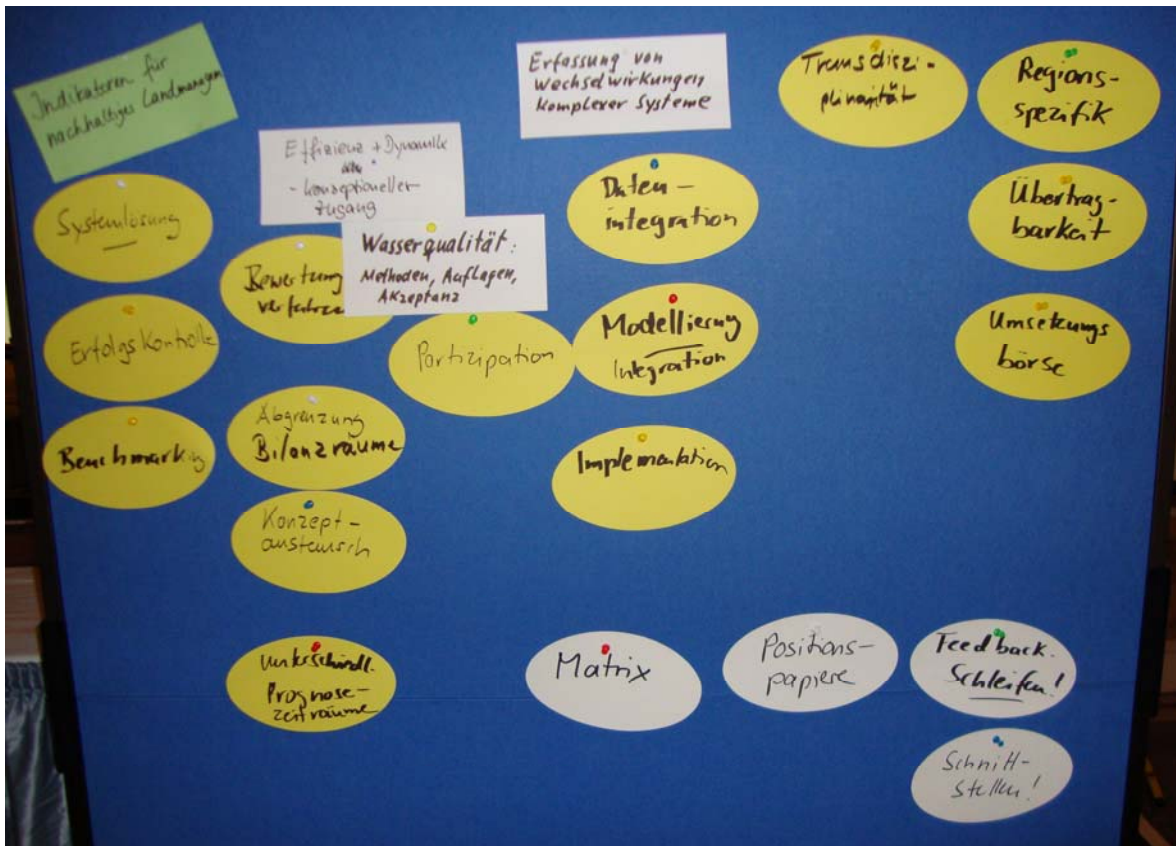 Indikatoren für
nachhaltiges Landmanagem
Systemlösung
Erfolgskontrolle
Benchmarking
Effizienz + Dynamik
- konzeptioneller
Zugang
Bewertung
verfahren
Wasserqualität:
Methoden, Auflagen,
Akzeptanz
Partizipation
Abgrenzung
Bilanzräume
Konzept-
austausch
Unterschiedl.
Prognose-
zeiträume
Erfassung von
Wechselwirkungen
komplexer Systeme
Daten-
integration
Modellierung
Integration
Implementation
Matrix
Transdiszi-
plinarität
Positions-
papiere
Regions-
spezifik
Übertrag-
barkeit
Umsetzungs
börse
Feedback-
Schleifen!
Schnitt-
stellen!